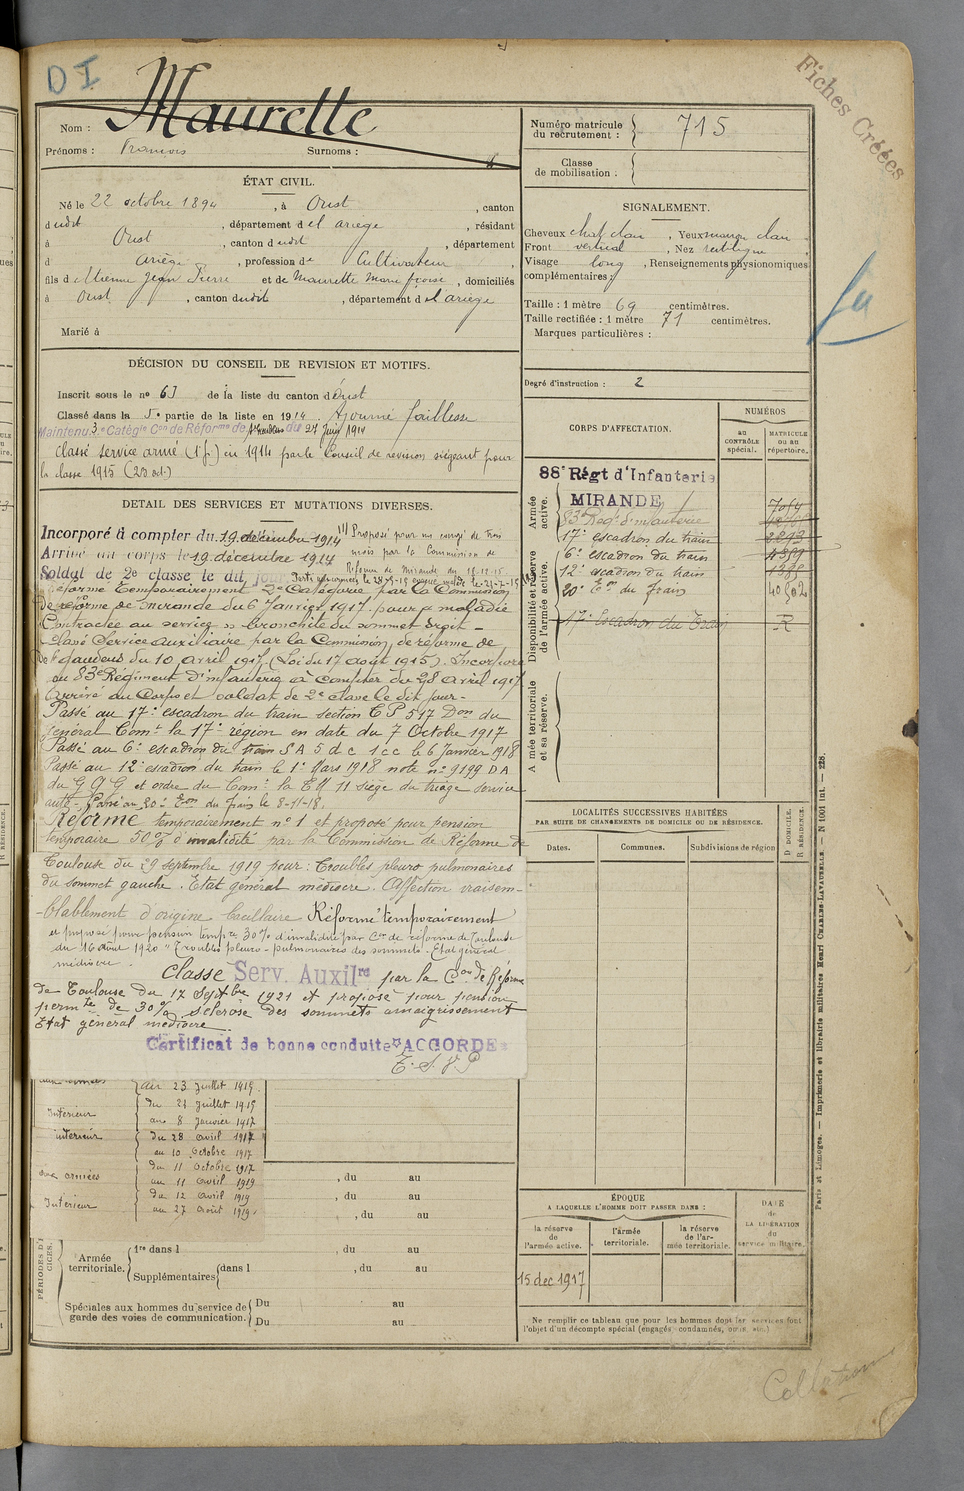 D I
Fiches Créées
Nom : Maurette
Prénoms : François Surnoms :
Numéro matricule du recrutement : 715
Classe de mobilisation :
ÉTAT CIVIL.
Né le 22 octobre 1894, à Oust, canton
dudit, département de l'ariège, résidant
à Oust, canton dudit, département
d ariège, profession de Cultivateur,
fils d'Etienne Jean Pierre et de Maurette Marie fçoise, domiciliés
à Oust, canton dudit, département de l'ariège
Marié à
SIGNALEMENT.
Cheveux chat clair, Yeux marron clair
Front vertical, Nez rectiligne
Visage long, Renseignements physionomiques
complémentaires :
Taille : 1 mètre 69 centimètres.
Taille rectifiée : 1 mètre 71 centimètres.
Marques particulières :
Degré d'instruction : 2
DÉCISION DU CONSEIL DE REVISION ET MOTIFS.
Inscrit sous le nº 63 de la liste du canton d'Oust
Classé dans la 5e partie de la liste en 1914. Ajourné faiblesse
Maintenu 3e Catégie Con de Réforme de du 27 Juin 1914
Classé service armé (1e p.) en 1914 par le Conseil de revision siégeant pour
la classe 1915 (23 oct.)
DETAIL DES SERVICES ET MUTATIONS DIVERSES.
Incorporé à compter du 19 décembre 1914
Arrivé au corps le 19 décembre 1914
Soldat de 2e classe le dit jour
Proposé pour un congé de trois
mois par la Commission de
Réforme de Mirande du
Réformé Temporairement 2e Catégorie par la Commission
De réforme de Mirande du 6 Janvier 1917 pour maladie
Contractée au service bronchite du sommet droit -
Classé Service auxiliaire par la Commission de réforme de
St gaudens du 10 avril 1917 (Loi du 17 août 1915). Incorporé
au 83e Régiment d'infanterie à compter du 28 avril 1917
Arrivé au Corps et soldat de 2e classe le dit jour -
Passé au 17e escadron du train section TP 517 Don du
général Comt la 17e région en date du 7 Octobre 1917
Passé au 6e escadron du train S A 5 d c 1 c c le 6 Janvier 1918
Passé au 12e escadron du train le 1er Mars 1918 note nº 9199 DA
du G Q G et ordre du Comt la E M 11 siège du triage service
auto - Passé au 20e Eon du Train le 8-11-18.
Réformé temporairement nº 1 et proposé pour pension
temporaire 50% d'invalidité par la Commission de Réforme de
Toulouse du 29 septembre 1919 pour : Troubles pleuro pulmonaires
du sommet gauche. Etat général médiocre. Affection vraisem-
-blablement d'origine bacillaire Réformé temporairement
et proposé pour pension tempre 30% d'invalidité par Con de réforme de Toulouse
du 16 Août 1920 "Troubles pleuro-pulmonaires des sommets. Etat général
médiocre.
Classé Serv. Auxilre par la Con de Réforme
de Toulouse du 17 Septbre 1921 et proposé pour pension
permte de 30% sclérose des sommets amaigrissement
Etat général médiocre
Certificat de bonne conduite "ACCORDÉ"
T. S. V. P
CORPS D'AFFECTATION.
NUMÉROS
AU CONTRÔLE spécial.
MATRICULE ou au répertoire.
Armée active.
Disponibilité et réserve de l'armée active.
Armée territoriale et sa réserve.
88e Régt d'Infanterie
MIRANDE 7054
83e Regt d'infanterie
17e escadron du train
6e escadron du train 1359
12e escadron du train 1385
20e Eon du Train
17e Escadron du Train R
LOCALITÉS SUCCESSIVES HABITÉES
PAR SUITE DE CHANGEMENTS DE DOMICILE OU DE RÉSIDENCE.
Dates. Communes. Subdivisions de région
D DOMICILE.
R RÉSIDENCE.
au 23 Juillet 1915.
Intérieur du 24 Juillet 1915
au 8 Janvier 1917
intérieur du 28 avril 1917
au 10 octobre 1917
aux armées du 11 octobre 1917
au 11 avril 1919
Intérieur du 12 avril 1919
au 27 Août 1919.
, du au
, du au
, du au
PÉRIODES D'
CICES.
Armée territoriale.
1re dans l , du au
Supplémentaires dans l , du au
Spéciales aux hommes du service de garde des voies de communication.
Du au
Du au
ÉPOQUE
A LAQUELLE L'HOMME DOIT PASSER DANS :
la réserve de l'armée active.
l'armée territoriale.
la réserve de l'armée territoriale.
DATE de LA LIBÉRATION du service militaire.
15 dec 1917
Ne remplir ce tableau que pour les hommes dont les services font
l'objet d'un décompte spécial (engagés, condamnés, omis, etc.)
Paris et Limoges. — Imprimerie et librairie militaires Henri CHARLES-LAVAUZELLE.